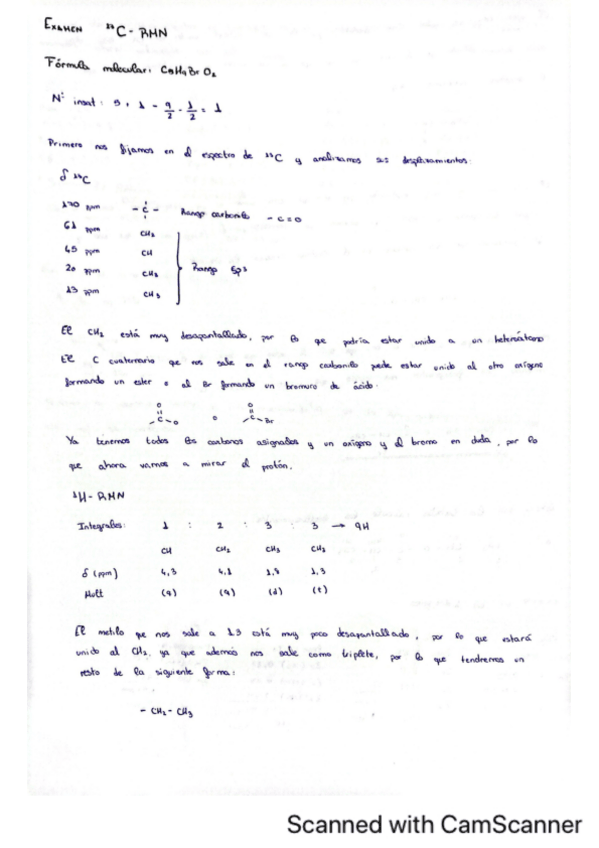 EXAMEN ¹³C-RMN
Fórmula molecular: C5H9BrO2
Nº insat: 5 + 1 - 9/2 - 1/2 = 1
Primero nos fijamos en el espectro de ¹³C y analizamos sus desplazamientos:
δ ¹³C
170 ppm - C - Rango carbonilo - C=O
61 ppm CH2
45 ppm CH
20 ppm CH3 Rango sp3
13 ppm CH3
El CH2 está muy desapantallado, por lo que podría estar unido a un heteroátomo
El C cuaternario que nos sale en el rango carbonilo puede estar unido al otro oxígeno
formando un ester o al Br formando un bromuro de ácido:
O O
-C-O o -C-Br
Ya tenemos todos los carbonos asignados y un oxígeno y el bromo en duda, por lo
que ahora vamos a mirar el protón.
¹H-RMN
Integrales: 1 : 2 : 3 : 3 → 9H
CH CH2 CH3 CH3
δ (ppm) 4,3 4,2 1,8 1,3
Mult (q) (q) (d) (t)
El metilo que nos sale a 1.3 está muy poco desapantallado, por lo que estará
unido al CH2, ya que además nos sale como triplete, por lo que tendremos un
resto de la siguiente forma:
- CH2 - CH3
Scanned with CamScanner